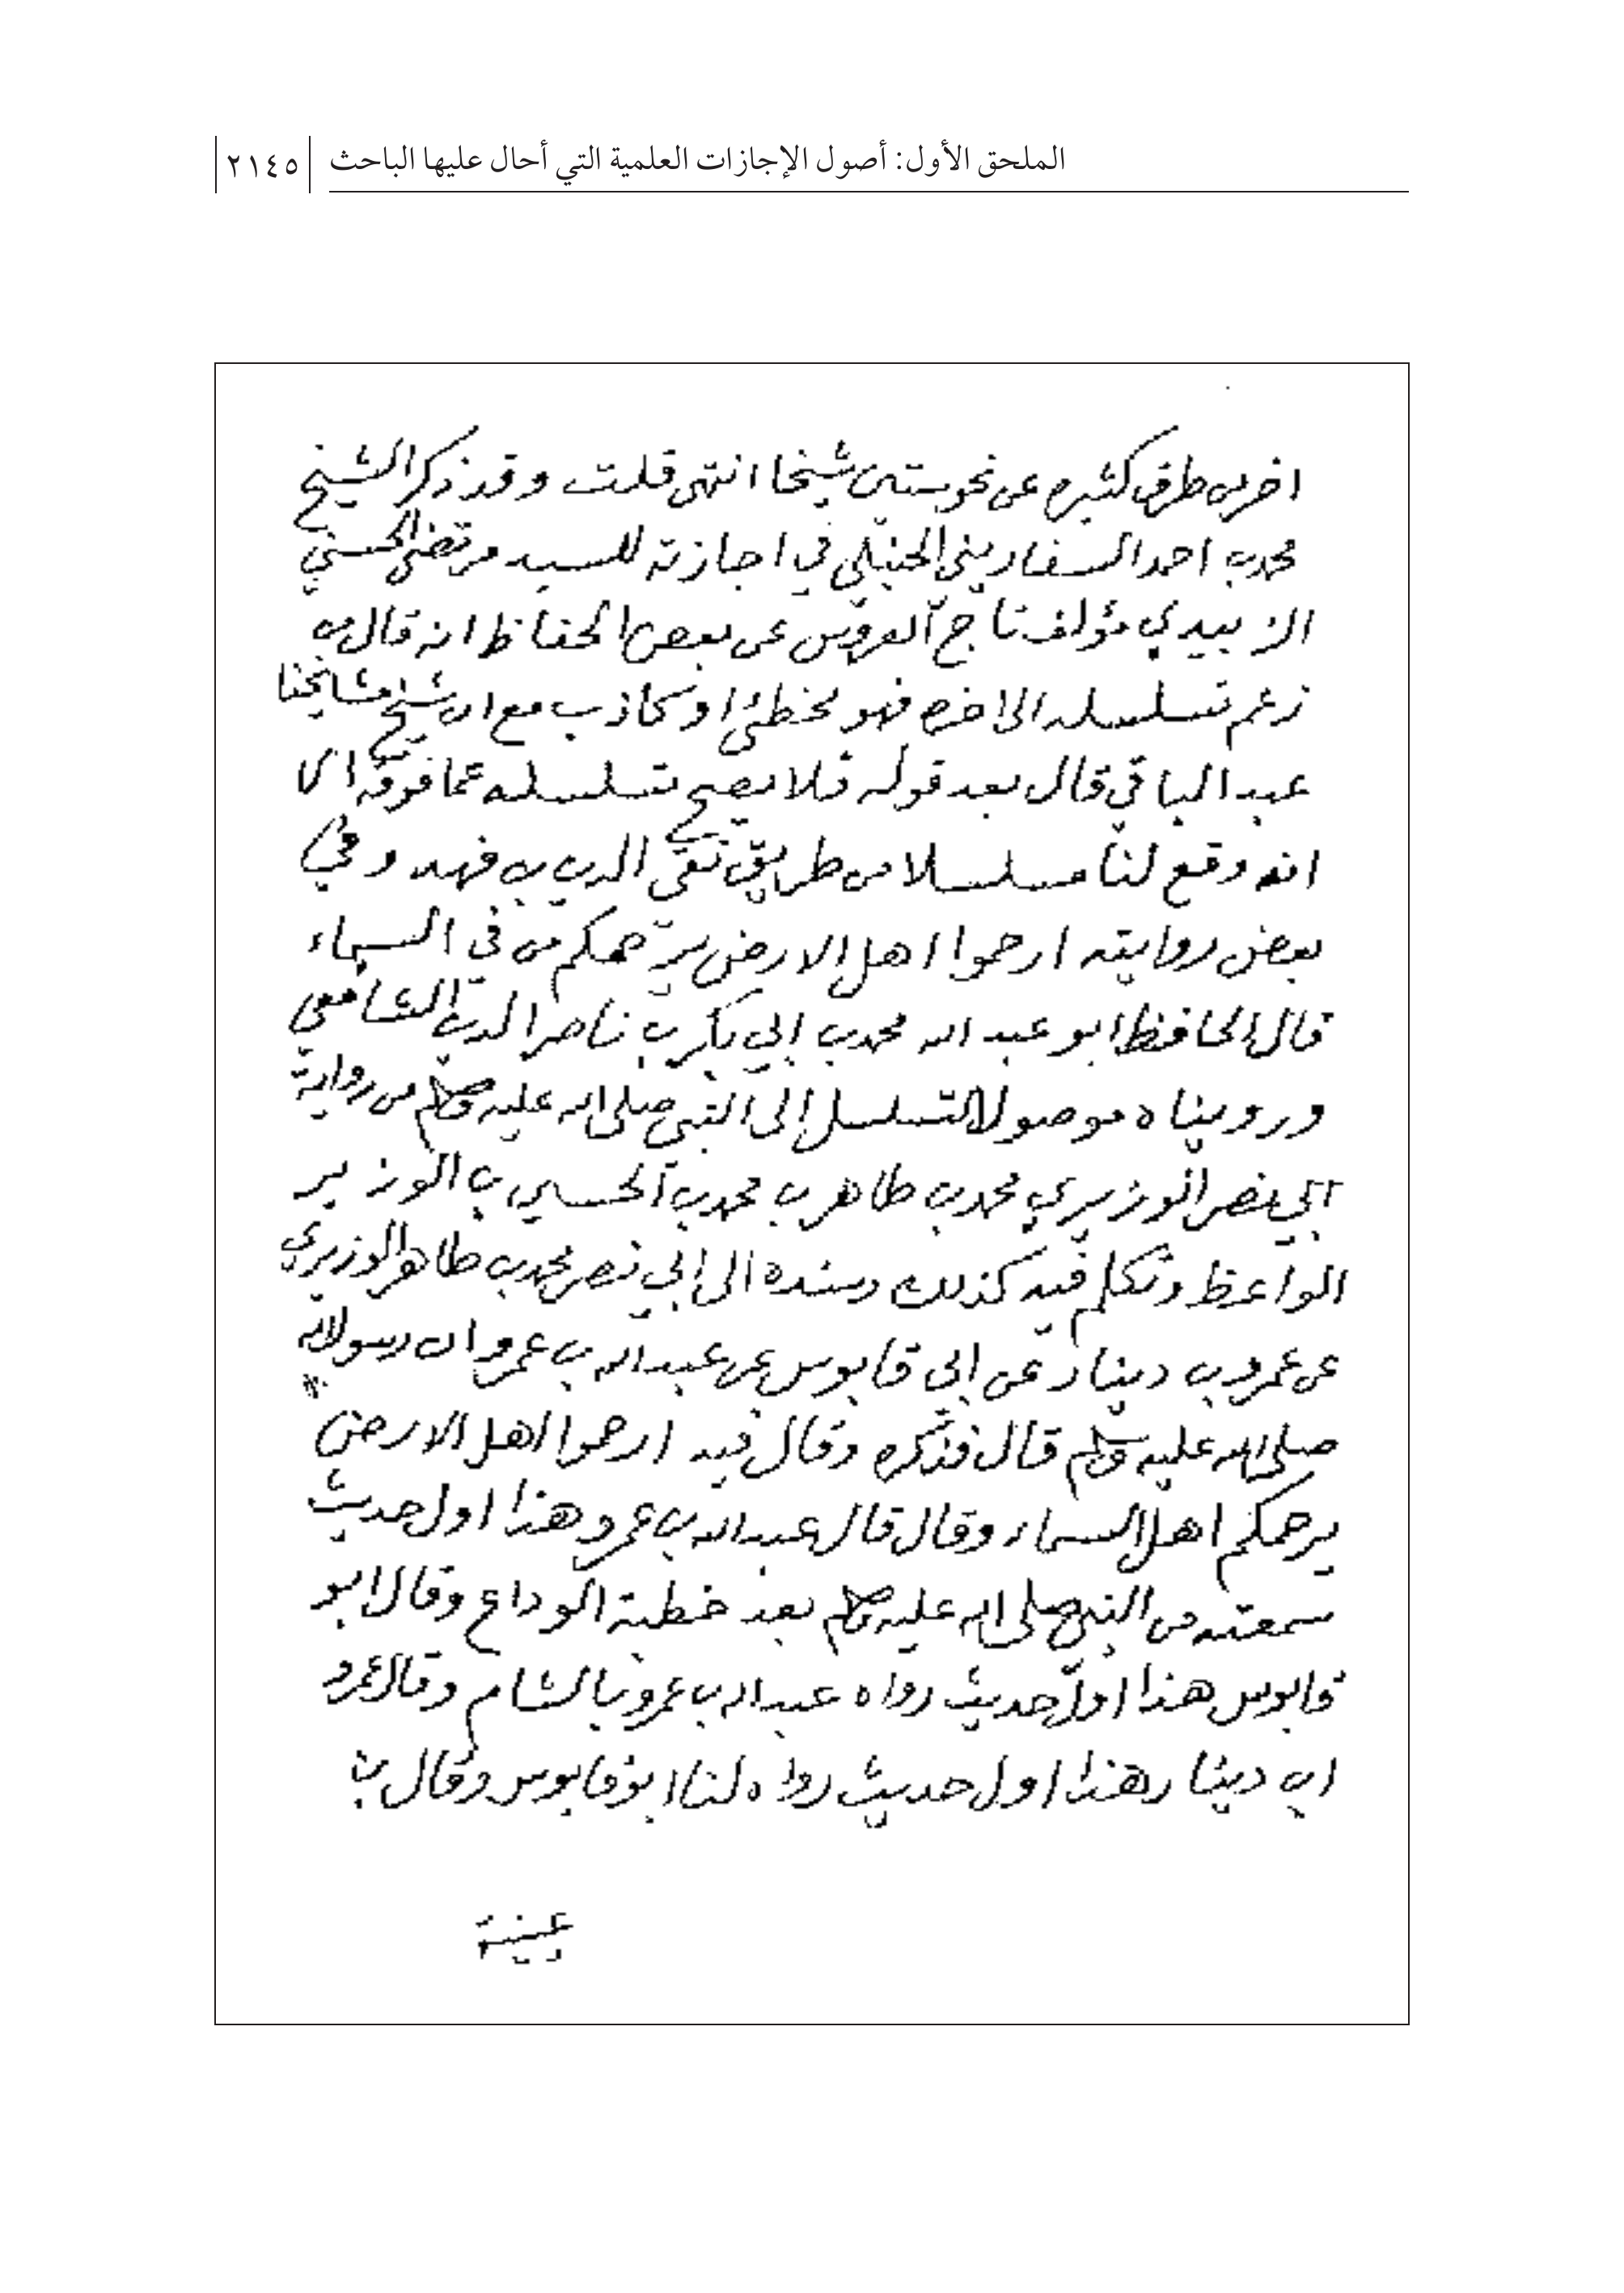 الملحق الأول: أصول الإجازات العلمية التي أحال عليها الباحث ٢١٤٥
اخر من طرق كثيره عن نحو ستين شيخا انتهى قلت وقد ذكر الشيخ
محمد بن احمد السفاريني الحنبلي في اجازته للسيد مرتضى الحسني
الزبيدي مؤلف تاج العروس عن بعض الحفاظ انه قال من
زعم تسلسله الى اخره فهو مخطئ او كاذب مع ان شيخ مشايخنا
عبد الباقي قال بعد قوله فلا يصح تسلسله عما فوقه
انه وقع لنا مسلسلا من طريق تقي الدين بن فهد وفي
بعض روايته ارحموا اهل الارض يرحمكم من في السماء
قال الحافظ ابو عبد الله محمد بن ابي بكر بن ناصر الدين الشافعي
ورويناه موصول التسلسل إلى النبي صلى الله عليه وسلم من رواية
ابي نصر الوزيري محمد بن طاهر بن محمد بن الحسين بن الوزير
الواعظ وتكلم فيه كذلك وسنده الى ابي نصر محمد بن طاهر الوزيري
عن عمرو بن دينار عن ابي قابوس عن عبد الله بن عمرو ان رسول الله
صلى الله عليه وسلم قال فذكره وقال فيه ارحموا اهل الارض
يرحمكم اهل السماء وقال قال عبد الله بن عمرو هذا اول حديث
سمعته من النبي صلى الله عليه وسلم بعد خطبة الوداع وقال ابو
قابوس هذا اول حديث رواه عبد الله بن عمرو بالشام وقال عمرو
ابن دينار هذا اول حديث رواه لنا ابو قابوس وقال بن
عيينة